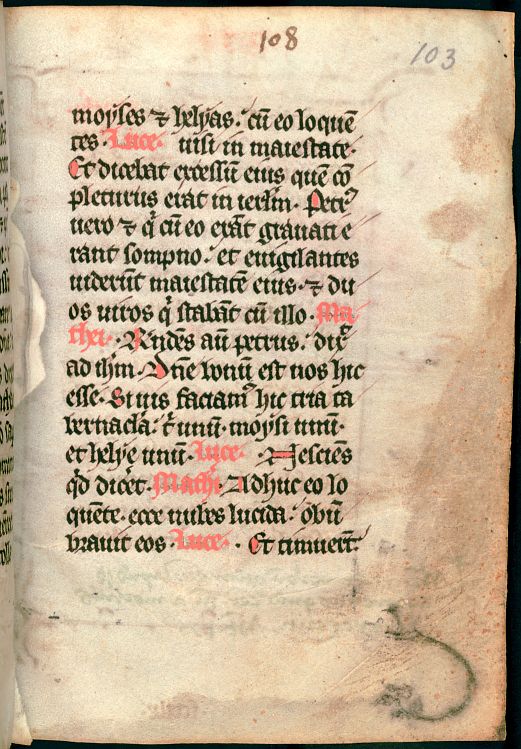 108
103
moyses ⁊ helyas. cū eo loquē
tes. Luce. uisi in maiestate.
Et dicebat excessū eius quē cō
pleturus erat in ierlm̄. Petrꝰ
uero ⁊ q̇ cū eo erāt grauati e
rant sompno. et euigilantes
uiderūt maiestatē eius. ⁊ du
os uiros q̇ stabāt cū illo. Ma
thei. Rn̄des aū petrus. dix̄
ad ihm̄. Dn̄e bonū est nos hic
esse. Si uis faciamꝰ hic tria ta
bernacla. t̄ unū. moysi unū.
et helye unū. Luce. Nesciēs
qd̄ dic̄et. Mathi. Adhuc eo lo
quēte. ecce nubes lucida. obū
brauit eos. Luce. Et timuer̄t.